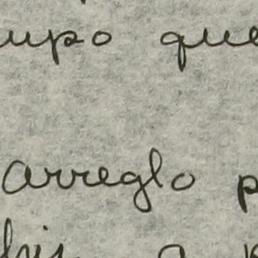 upo que
arreglo p